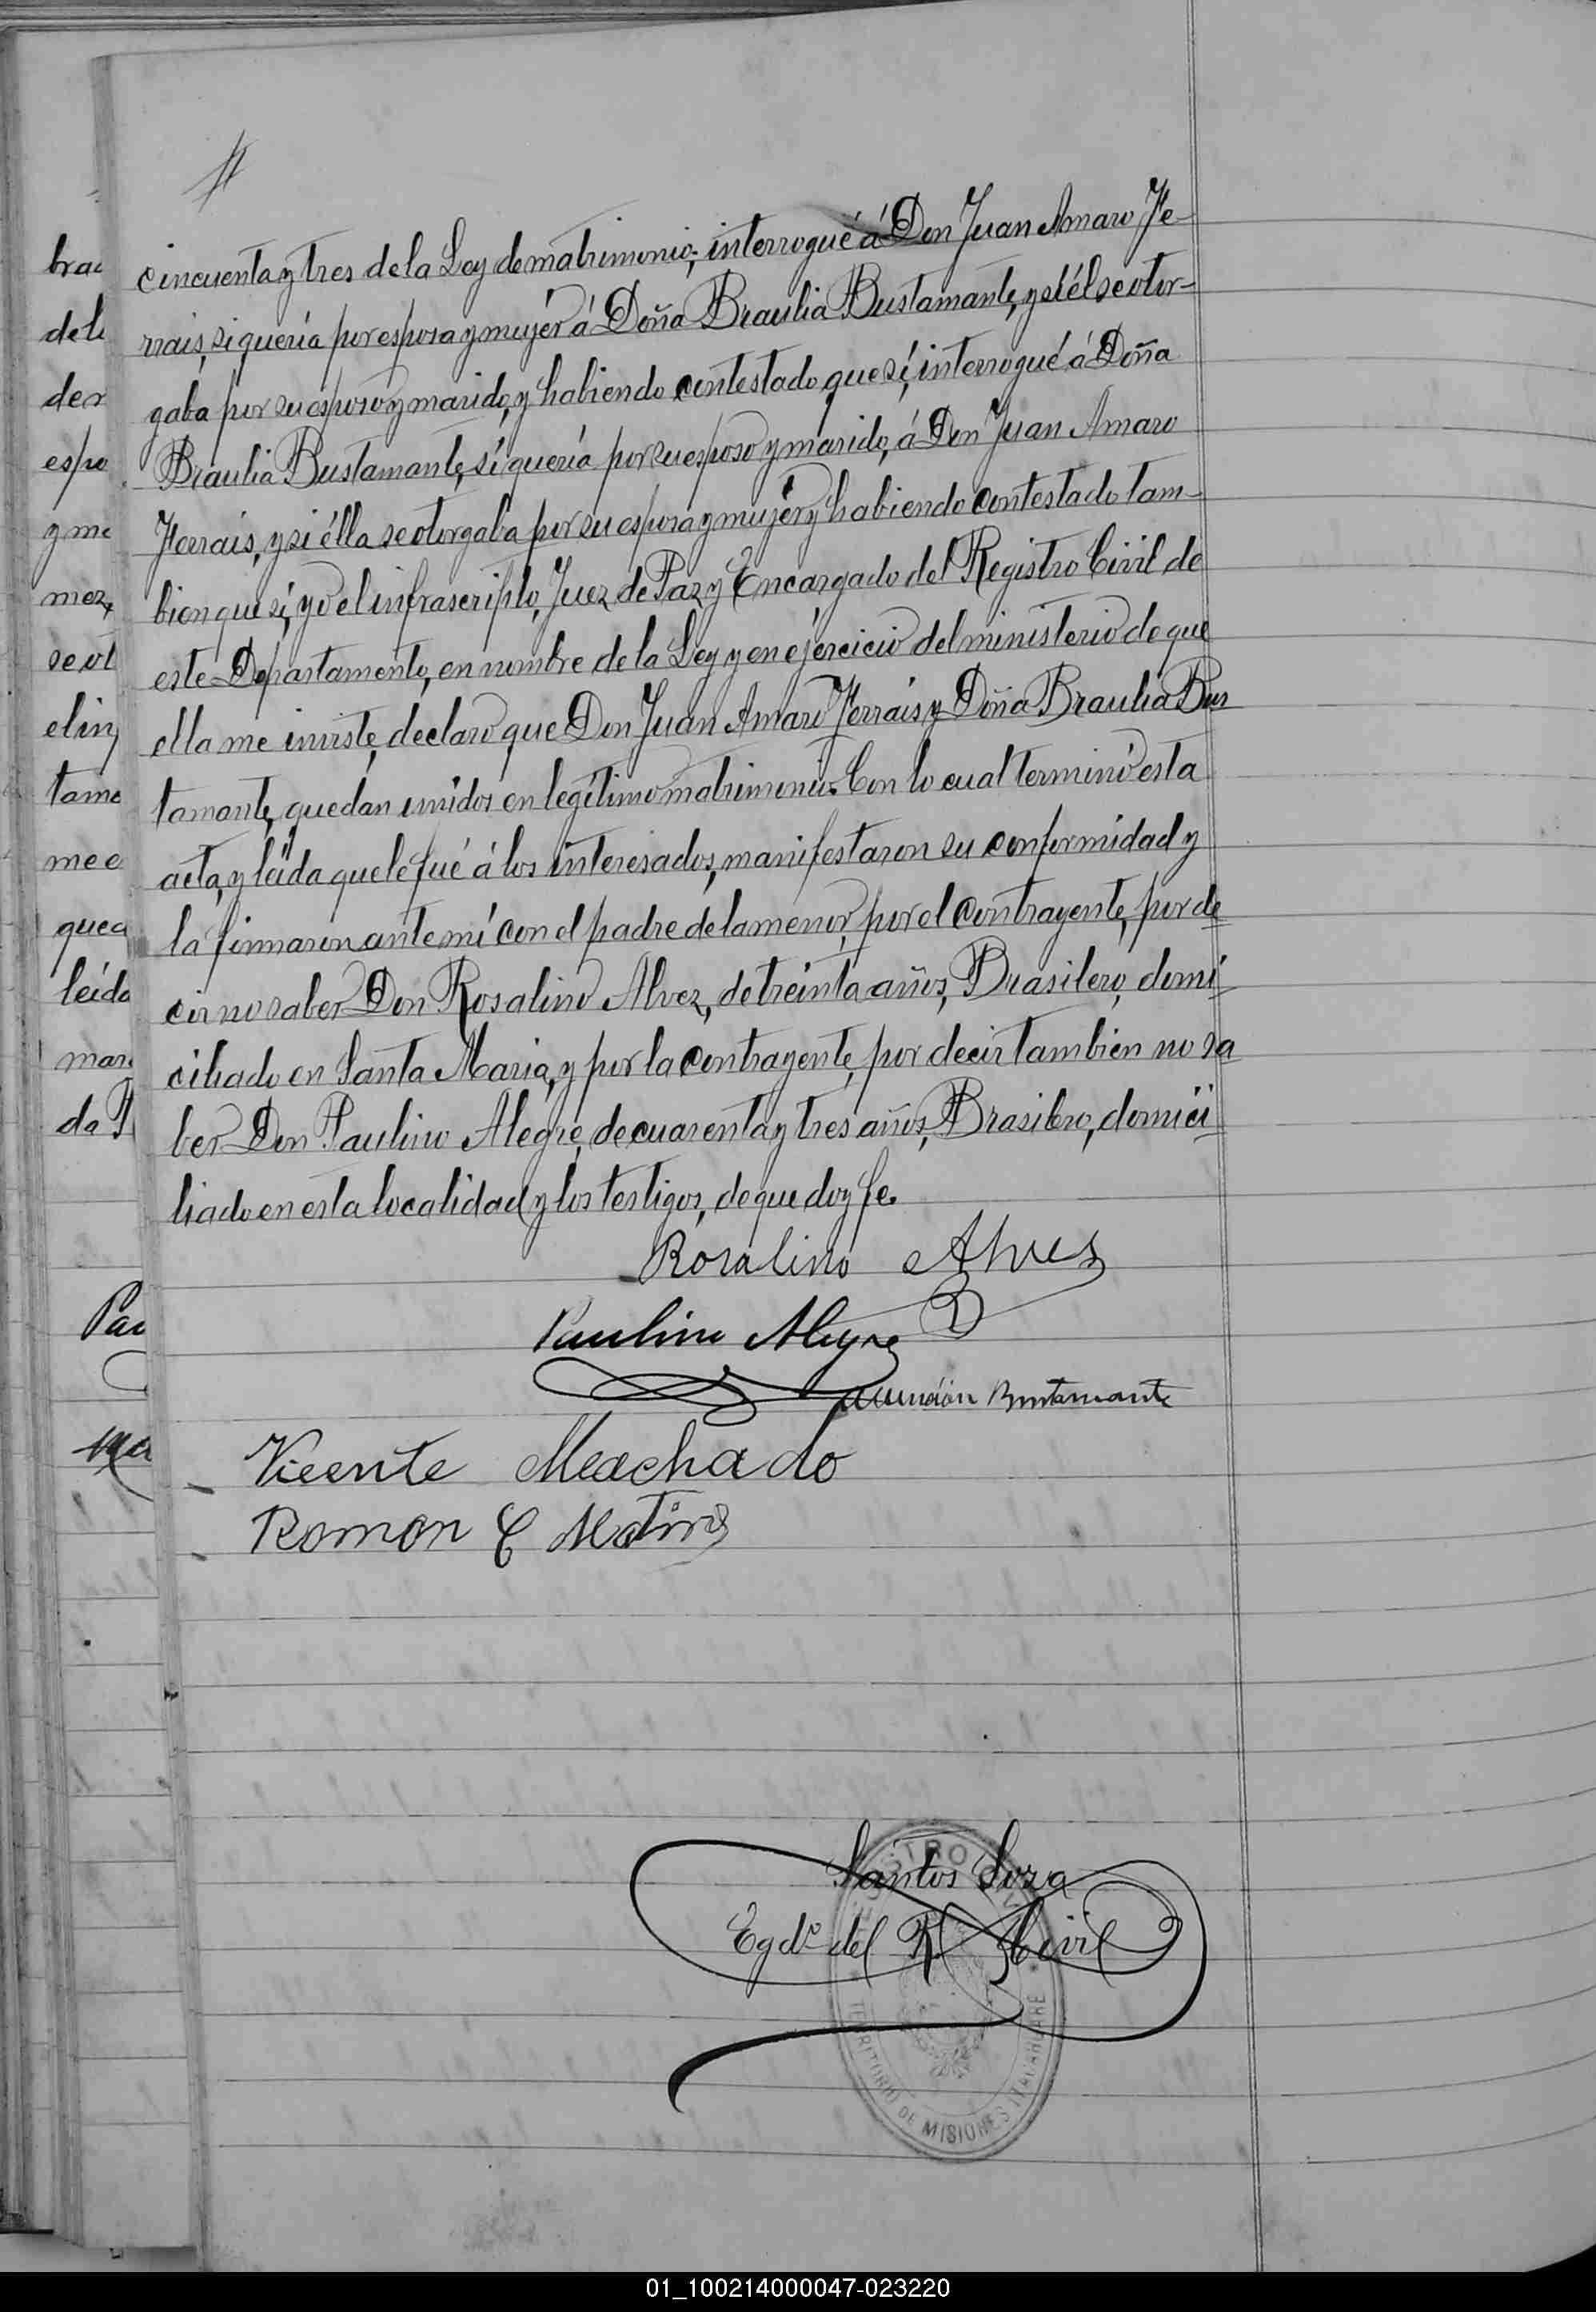 cincuenta y tres de la Ley de matrimonio; interrogué á Don Juan Amaro Fe-
rrais, si quería por esposa y mujér á Doña Braulia Bustamante, y si él se otor-
gaba por su esposo y marido, y habiendo contestado que sí, interrogué á Doña
Braulia Bustamante, sí quería por su esposo y marido, á Don Juan Amaro
Ferrais, y si élla se otorgaba por su esposa y mujér y habiendo contestado tam-
bien que sí, yo el infrascripto, Juez de Paz y Encargado del Registro Civil de
este Departamento, en nombre de la Ley y en ejercicio del ministerio de que
ella me inviste, declaro que Don Juan Amaro Ferrais y Doña Braulia Bus
tamante, quedan unidos en legítimo matrimonio. Con lo cual terminó esta
acta, y leída que le fué á los interesados, manifestaron su conformidad y
la firmaron ante mí con el padre de la menor, por el contrayente, por de
cir no saber Don Rosalino Alvez, de treinta años, Brasilero, domi
ciliado en Santa Maria, y por la contrayente, por decir tambien no sa
ber Don Paulino Alegre, de cuarenta y tres años, Brasilero, domici
liado en esta localidad y los testigos, de que doy fe.
Rosalino Alves
Paulino Alegre
Asunción Bustamante
Vicente Machado
Romon C Matins
Santos Soza
Egdo del R. Civil
REGISTRO CIVIL
TERRITORIO DE MISIONES
brac
del
der
espo
y me
mez,
se ot
el in
tama
me e
queda
leída
mar
da P
Pau
01_100214000047-023220